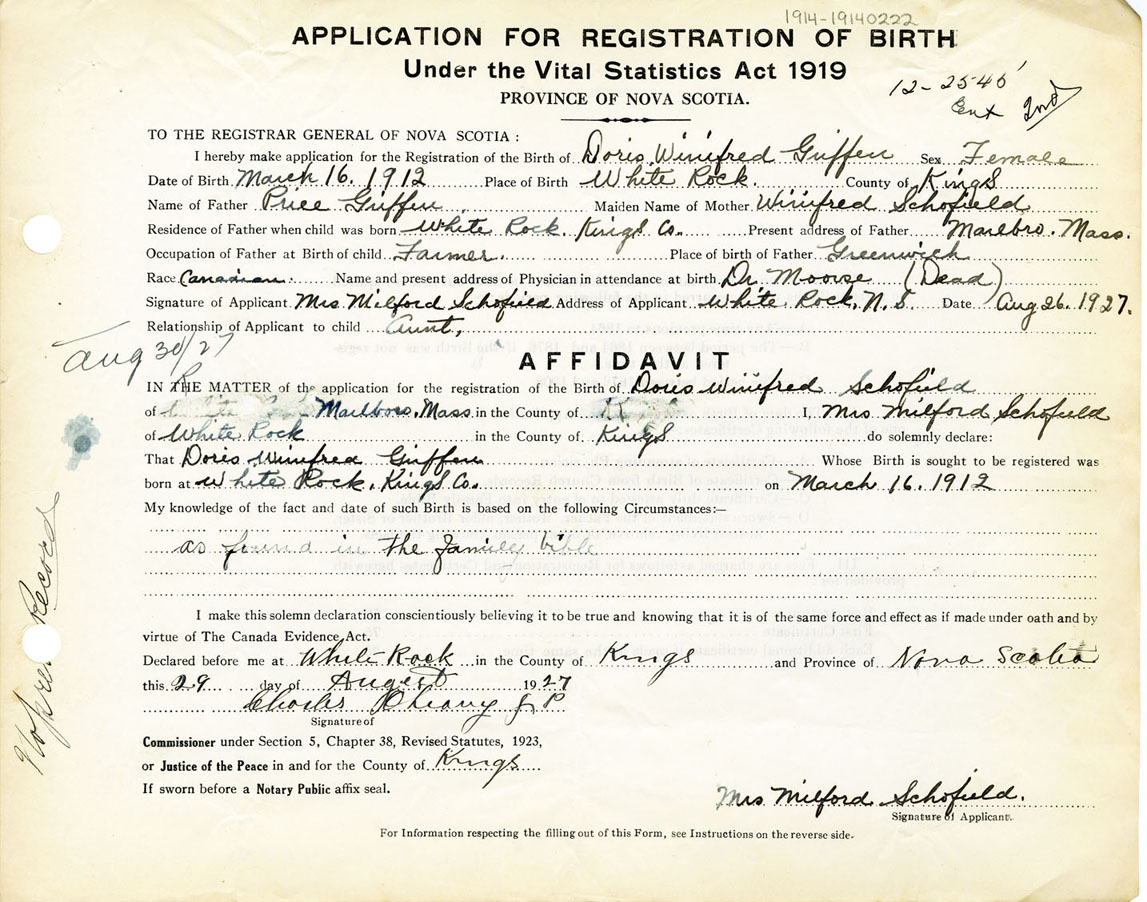 1914-19140222
APPLICATION FOR REGISTRATION OF BIRTH
Under the Vital Statistics Act 1919
PROVINCE OF NOVA SCOTIA.
12-25-45
Ent 2nd
TO THE REGISTRAR GENERAL OF NOVA SCOTIA :
I hereby make application for the Registration of the Birth of Doris Winifred Griffen Sex Female
Date of Birth March 16. 1912 Place of Birth White Rock. County of Kings
Name of Father Price Griffen Maiden Name of Mother Winifred Schofield
Residence of Father when child was born White Rock. Kings Co. Present address of Father Marlbro. Mass.
Occupation of Father at Birth of child Farmer. Place of birth of Father Greenwich
Race Canadian. Name and present address of Physician in attendance at birth Dr. Moorse (Dead)
Signature of Applicant Mrs Milford Schofield Address of Applicant White Rock, N. S. Date Aug 26. 1927.
Relationship of Applicant to child Aunt,
Aug 30/27
AFFIDAVIT
IN THE MATTER of the application for the registration of the Birth of Doris Winifred Schofield
of Marlboro, Mass in the County of I, Mrs Milford Schofield
of White Rock in the County of Kings do solemnly declare:
That Doris Winifred Griffen Whose Birth is sought to be registered was
born at White Rock. Kings Co. on March 16. 1912
My knowledge of the fact and date of such Birth is based on the following Circumstances:—
as found in the family bible
I make this solemn declaration conscientiously believing it to be true and knowing that it is of the same force and effect as if made under oath and by
virtue of The Canada Evidence Act.
Declared before me at White Rock in the County of Kings and Province of Nova Scotia
this 29 day of Augest 1927
Charles J P
Signature of
Commissioner under Section 5, Chapter 38, Revised Statutes, 1923,
or Justice of the Peace in and for the County of Kings
If sworn before a Notary Public affix seal.
Mrs Milford Schofield.
Signature of Applicant.
For Information respecting the filling out of this Form, see Instructions on the reverse side.
No Record